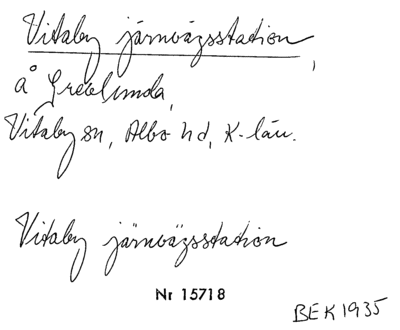 Vitaby järnvägsstation,
å Grevlunda,
Vitaby sn, Albo hd, K-län.
Vitaby järnvägsstation
Nr 15718
BEK 1935